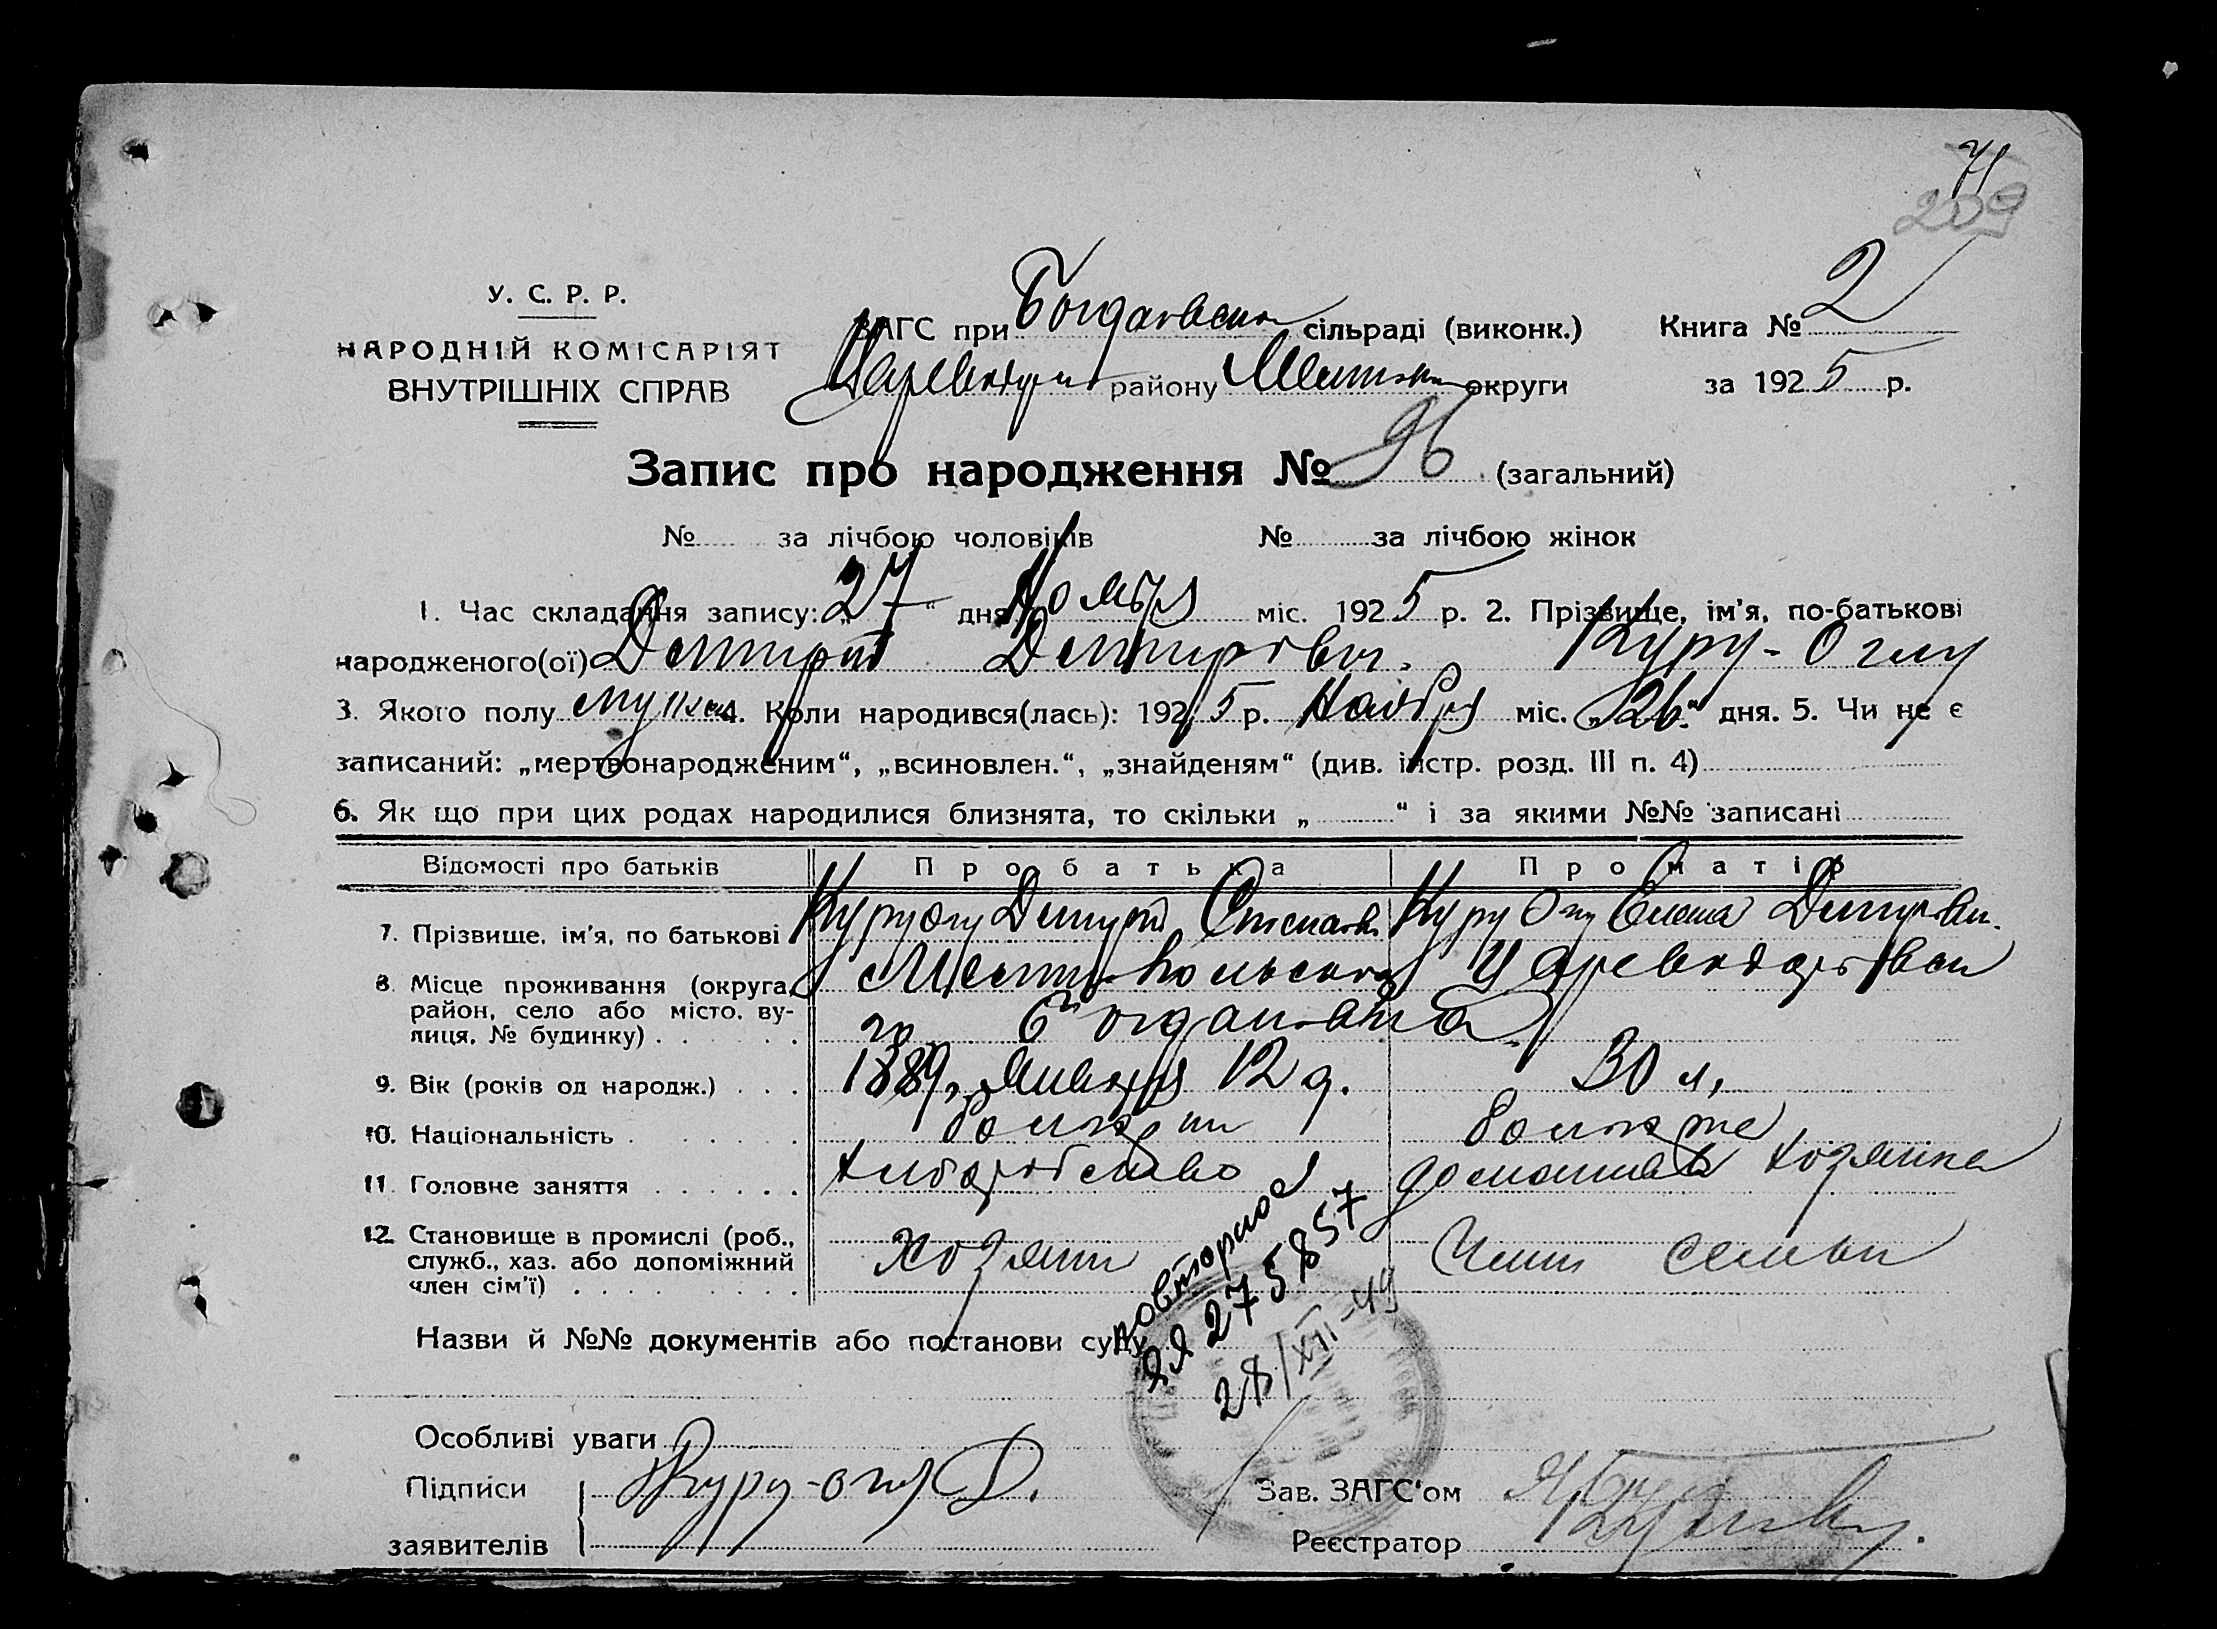 71
209
У. С. Р. Р.
НАРОДНІЙ КОМІСАРІЯТ
ВНУТРІШНІХ СПРАВ
ЗАГС при сільраді (виконк.) Книга № 2
району округи за 1925 р.
Запис про народження № 96 (загальний)
№ за лічбою чоловіків № за лічбою жінок
1. Час складання запису: „27“ дня Ноября міс. 1925 р. 2. Прізвище, ім'я, по-батькові
народженого(ої) Дмитрий Дмитрович. Куру-Оглу
3. Якого полу 4. Коли народився(лась): 1925 р. Ноября міс. „26“ дня. 5. Чи не є
записаний: „мертвонародженим“, „всиновлен.“, „знайденям“ (див. інстр. розд. III п. 4)
6. Як що при цих родах народилися близнята, то скільки „ “ і за якими №№ записані
Відомості про батьків Про батька Про матір
7. Прізвище, ім'я, по батькові Дмитрий Елена
8. Місце проживання (округа,
район, село або місто, ву-
лиця, № будинку)
9. Вік (років од народж.) 1889, Января 12 д. 30 л,
10. Національність
11. Головне заняття домашняя хозяйка
12. Становище в промислі (роб., хозяин Член семьи
служб., хаз. або допоміжний
член сім'ї)
повторное
ЯЯ 275857
28/XII-49
Назви й №№ документів або постанови суду
Особливі уваги
Підписи Куру-оглу Д. Зав. ЗАГС'ом
заявителів Реєстратор